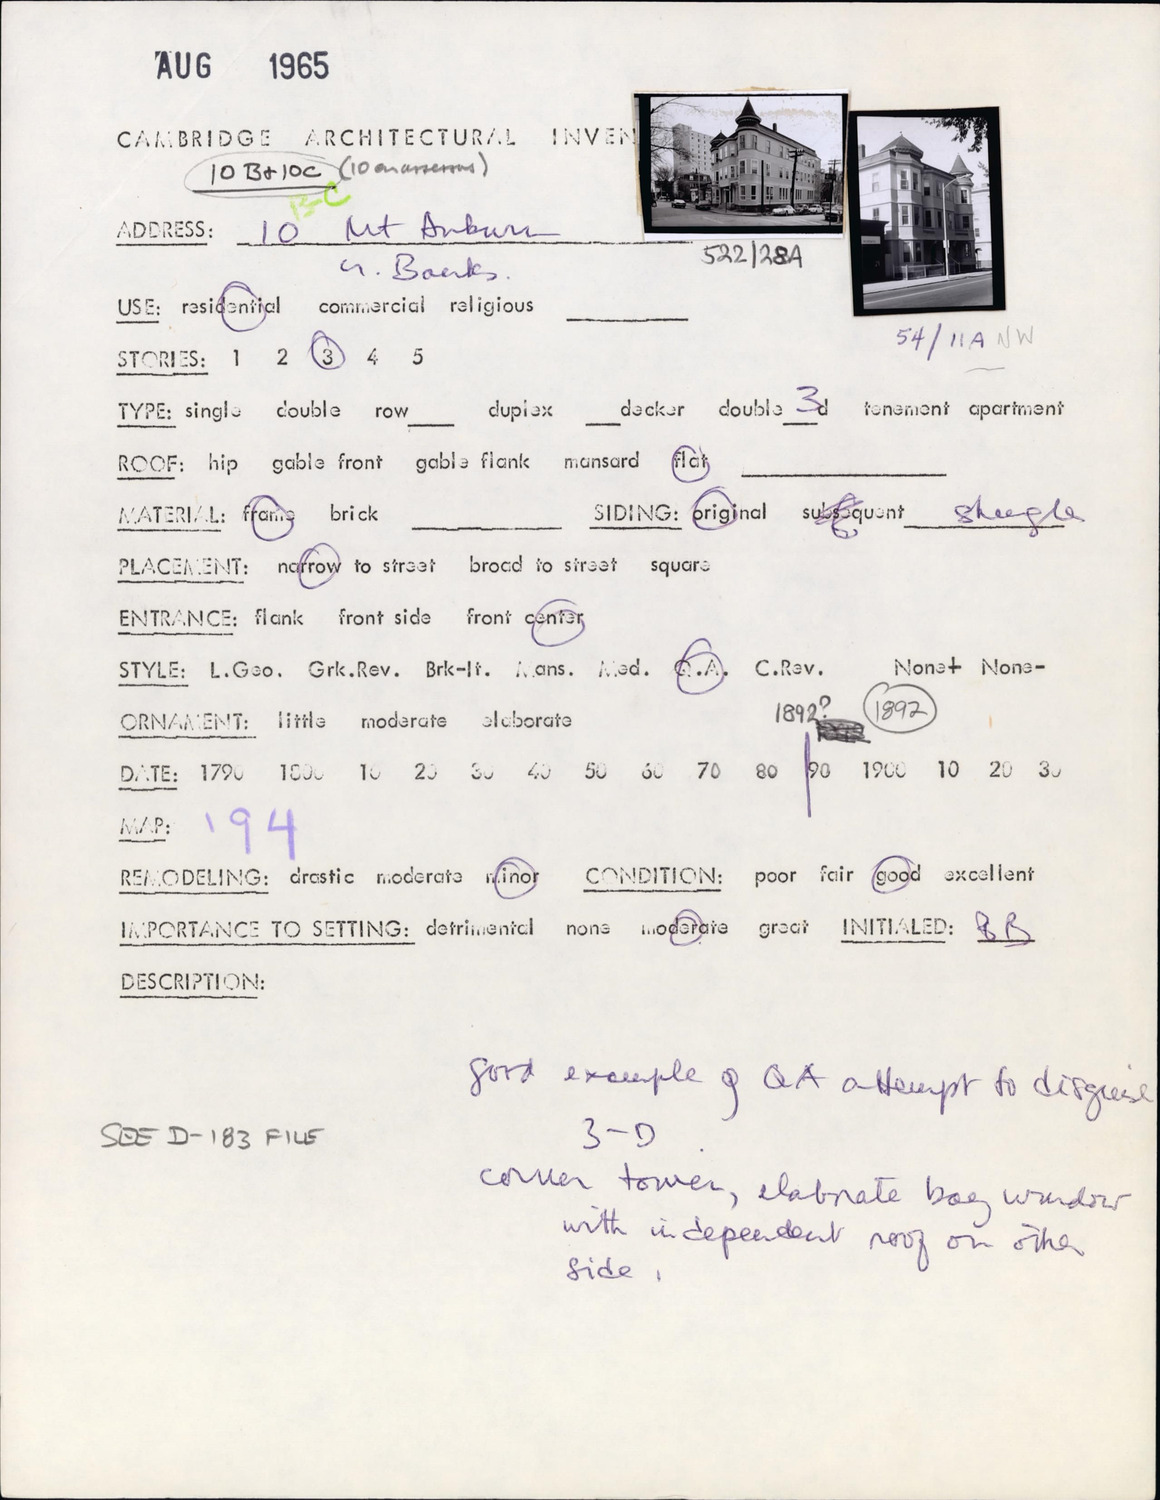 AUG 1965
CAMBRIDGE ARCHITECTURAL INVEN
10 B+10C (10 on assessors)
B-C
ADDRESS: 10 Mt Auburn
USE: residential commercial religious
522/28A
54/11A NW
STORIES: 1 2 3 4 5
TYPE: single double row___ duplex ___decker double 3d tenement apartment
ROOF: hip gable front gable flank mansard flat
MATERIAL: frame brick SIDING: original subsequent shingle
PLACEMENT: narrow to street broad to street square
ENTRANCE: flank front side front center
STYLE: L.Geo. Grk.Rev. Brk-It. Mans. Med. Q.A. C.Rev. None+ None-
ORNAMENT: little moderate elaborate 1892? 1892
DATE: 1790 1800 10 20 30 40 50 60 70 80 90 1900 10 20 30
MAP: '94
REMODELING: drastic moderate minor CONDITION: poor fair good excellent
IMPORTANCE TO SETTING: detrimental none moderate great INITIALED: BB
DESCRIPTION:
good example of QA attempt to disguise
3-D
SEE D-183 FILE
corner tower, elaborate bay window
with independent roof on other
side.